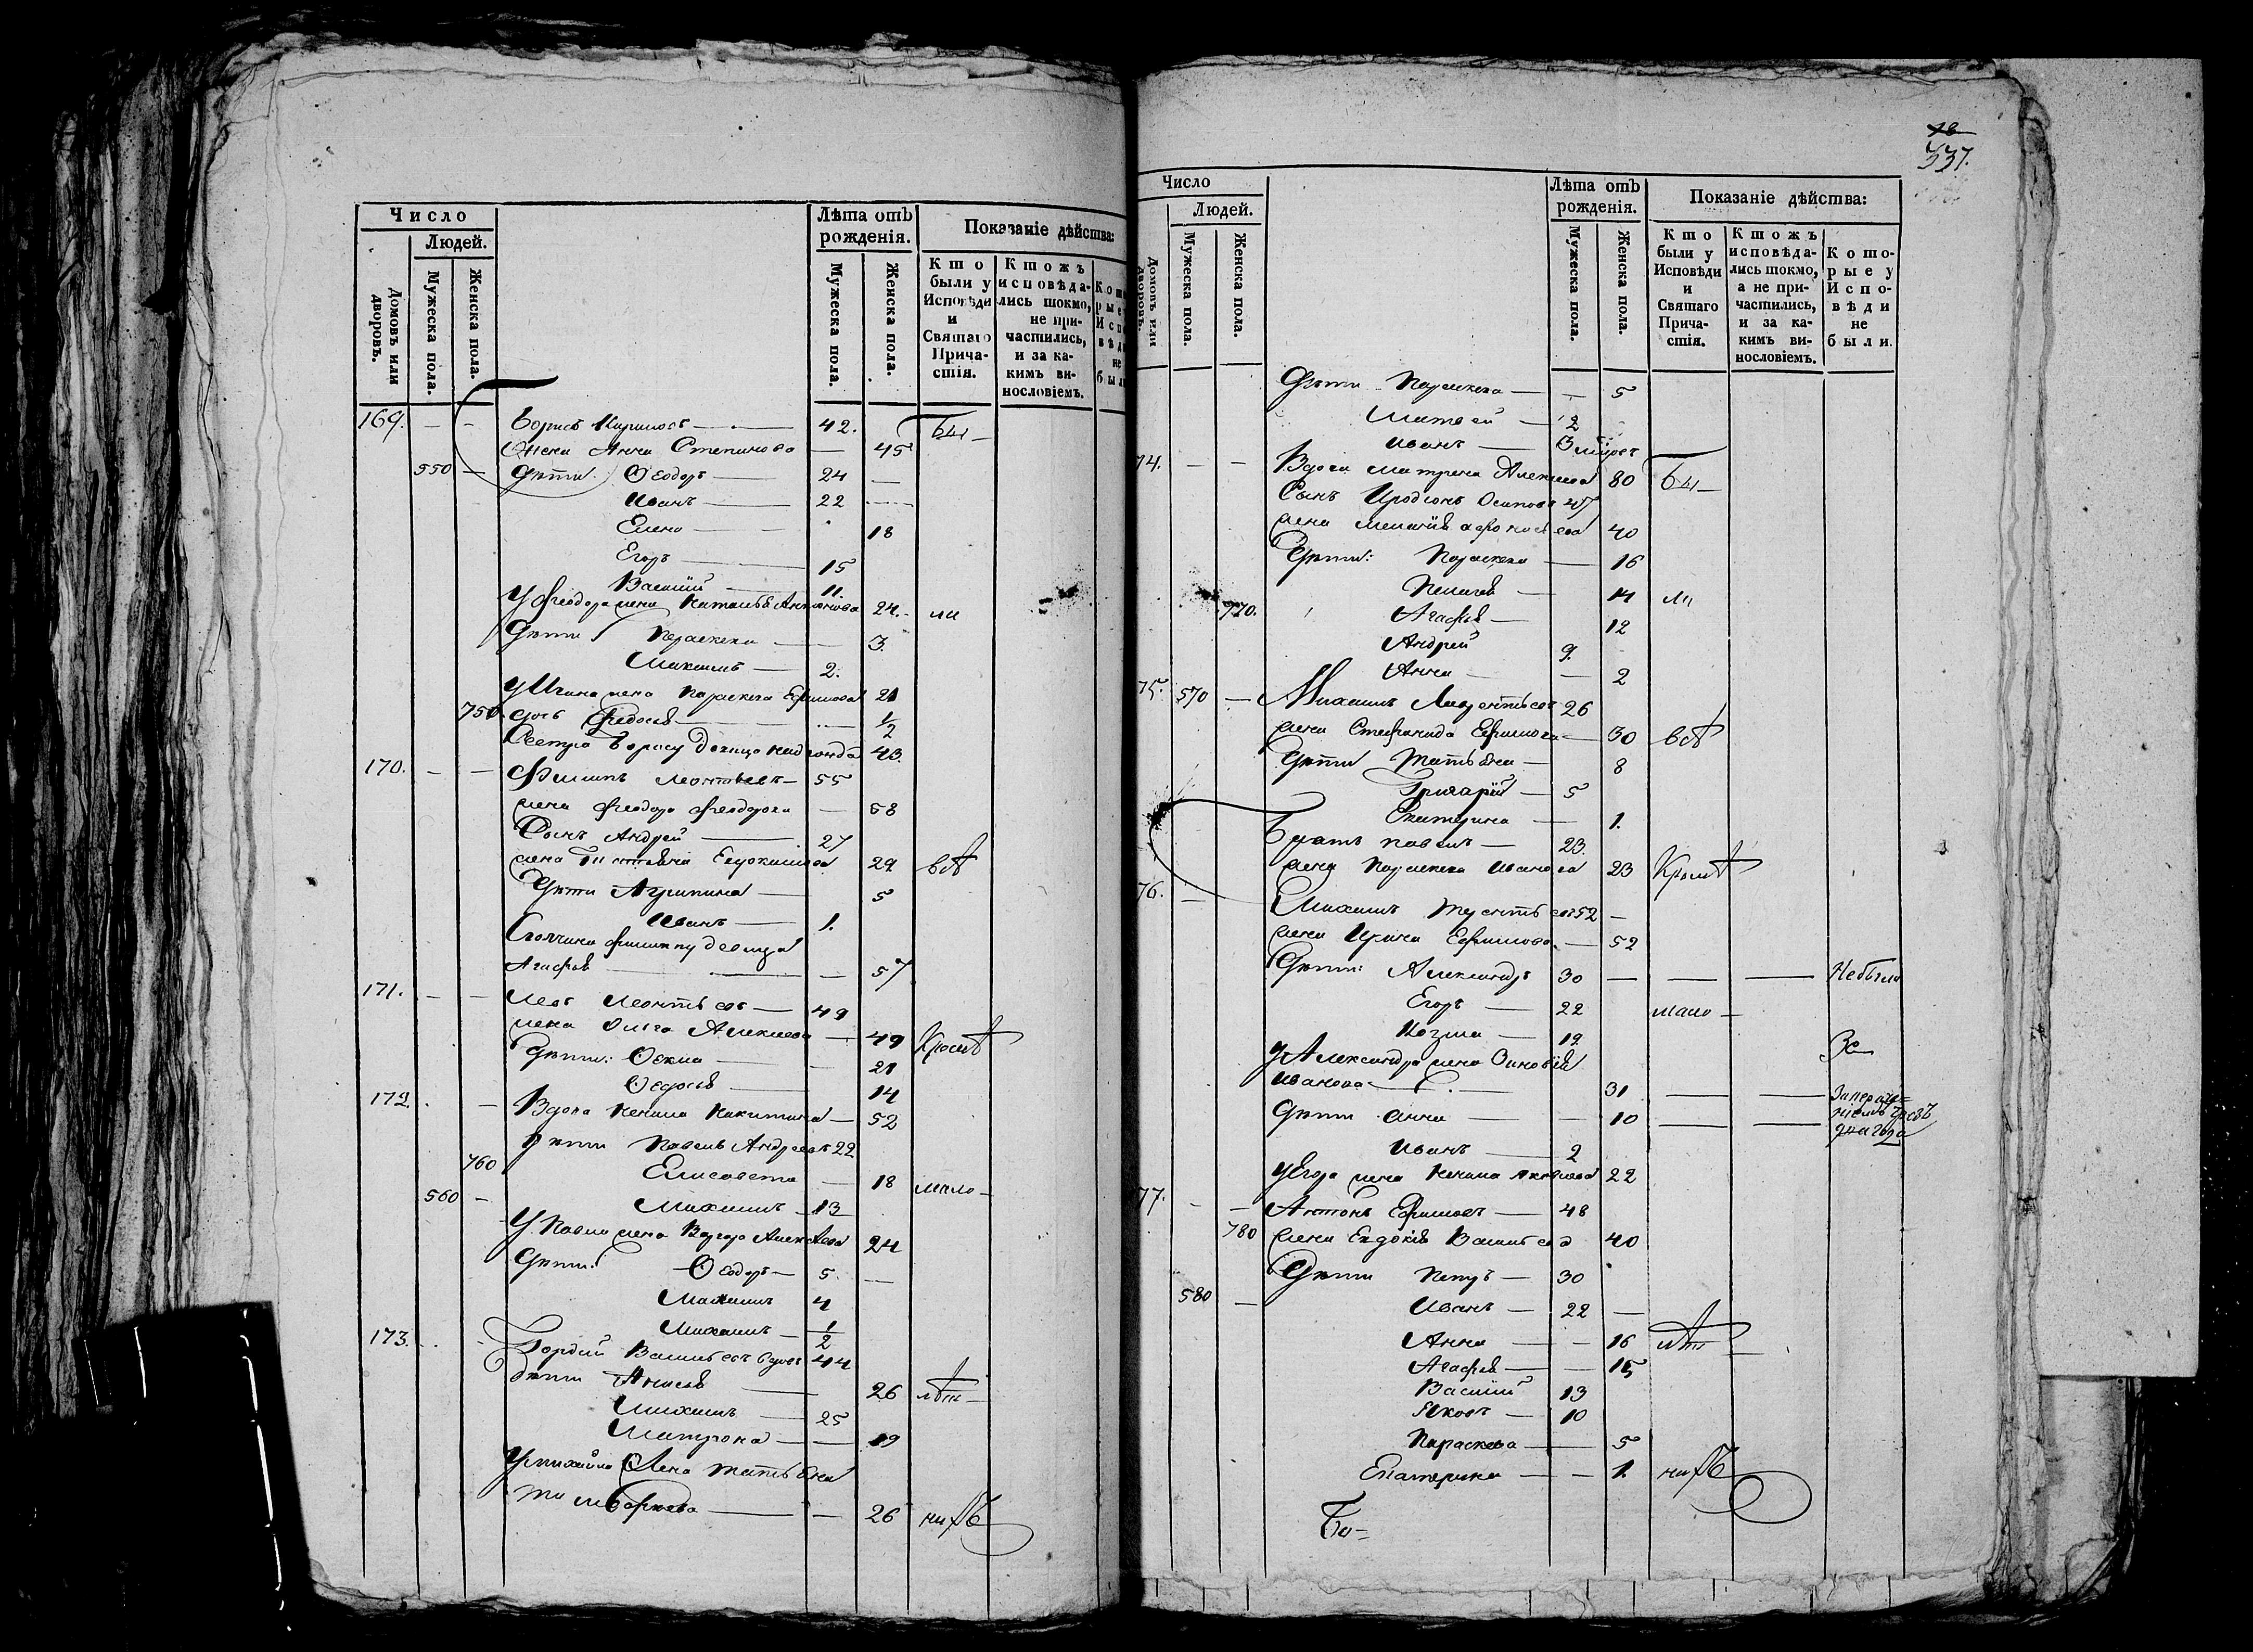 Число
Людей.
Домовъ или дворовъ.
Мужеска пола.
Женска пола.
Лѣта отъ рожденія.
Мужеска пола.
Женска пола.
Показаніе дѣйства:
Кто были у Исповѣди и Святаго Прича-стія.
Ктожъ исповѣда-лись токмо, не при-частились, и за ка-кимъ ви-нословіемъ.
169. — — Борисъ Кириловъ — 42. Бы-
Жена Анна Степанова — 45
550 — Дѣти: Ѳеодоръ — 24 —
Иванъ — 22
Елена — 18
Егоръ — 15
Василій — 11.
У Феодора жена Наталья Антонова 24. ли
Дѣти Параскева — 3.
Максимъ — 2.
У Ивана жена Параскева Ефимова 21
750 дочь Федосья — 1/2
Сестра Борису девица 43.
170. — — Филипъ Леонтьевъ — 55
жена Феодора Феодорова — 58
Сынъ Андрей — 27
жена Татьяна Евдокимова 29 всѣ
Дѣти Агрипина — 5
Иванъ — 1.
Филиппу девица
Агафья — — 57
171. — — Левъ Леонтьевъ — 49
жена Ольга Алексеева — 49 Кромѣ
Дѣти: Ѳекла — 21
Ѳедосья — 14
172 — Вдова Ксения Никитина — 52
Дѣти Павелъ Андреевъ 22
760 Елисавета — 18 мало-
560 — Михаилъ — 13
У Павла жена Варвара Алексѣева 24
Дѣти: Ѳеодоръ — 5 —
Максимъ 4
Михаилъ — 1/2
173. Гордѣй Васильевъ вдовъ 44
Дѣти Анисья — 26 лѣт-
Михаилъ — 25
Матрона — 19
У Михайла жена Татьяна
— — 26 нихъ
18
337.
Число
Людей.
Домовъ или дворовъ.
Мужеска пола.
Женска пола.
Лѣта отъ рожденія.
Мужеска пола.
Женска пола.
Показаніе дѣйства:
Кто были у Исповѣди и Святаго Прича-стія.
Ктожъ исповѣда-лись токмо, а не при-частились, и за ка-кимъ ви-нословіемъ.
Кото-рые у Испо-вѣди не были.
Дѣти Параскева — — 5
Матвей — 2
Иванъ —
74. — — Вдова Матрена Алексеева 80 Бы-
Сынъ Иродіонъ Осиповъ 47
жена Меланія Афонасьева 40
Дѣти: Параскева — 16
Пелагея — 14 ли
770. Агафья — 12
Андрей 9.
Анна — — 2
75. 570 — Михаилъ Лаврентьевъ 26
жена Стефанида Ефимова — 30 всѣ
Дѣти Татьяна — 8
Григорій — 5
Екатерина — 1.
Братъ Павелъ — 23.
жена Параскева Иванова 23 Кромѣ
76. — Михаилъ Терентьевъ 52 —
жена Ирина Ефимова — 52
Дѣти: Александръ 30 — — — Небыли
Егоръ — 22 мало —
Козма — 19
У Александра жена Зиновія За
Иванова — 31 — —
Дѣти Анна — — 10 — —
Иванъ — 2
У Егора жена Ксения Яковлева 22
77. — — Антонъ Ефимовъ — 48
780 жена Евдокія Васильева 40
Дѣти Петръ — 30
580 — Иванъ — 22 —
Анна — — 16 лѣт
Агафья — — 15
Василій 13
Яковъ — 10
Параскева — 5
Екатерина — — 1. нихъ
Бо-